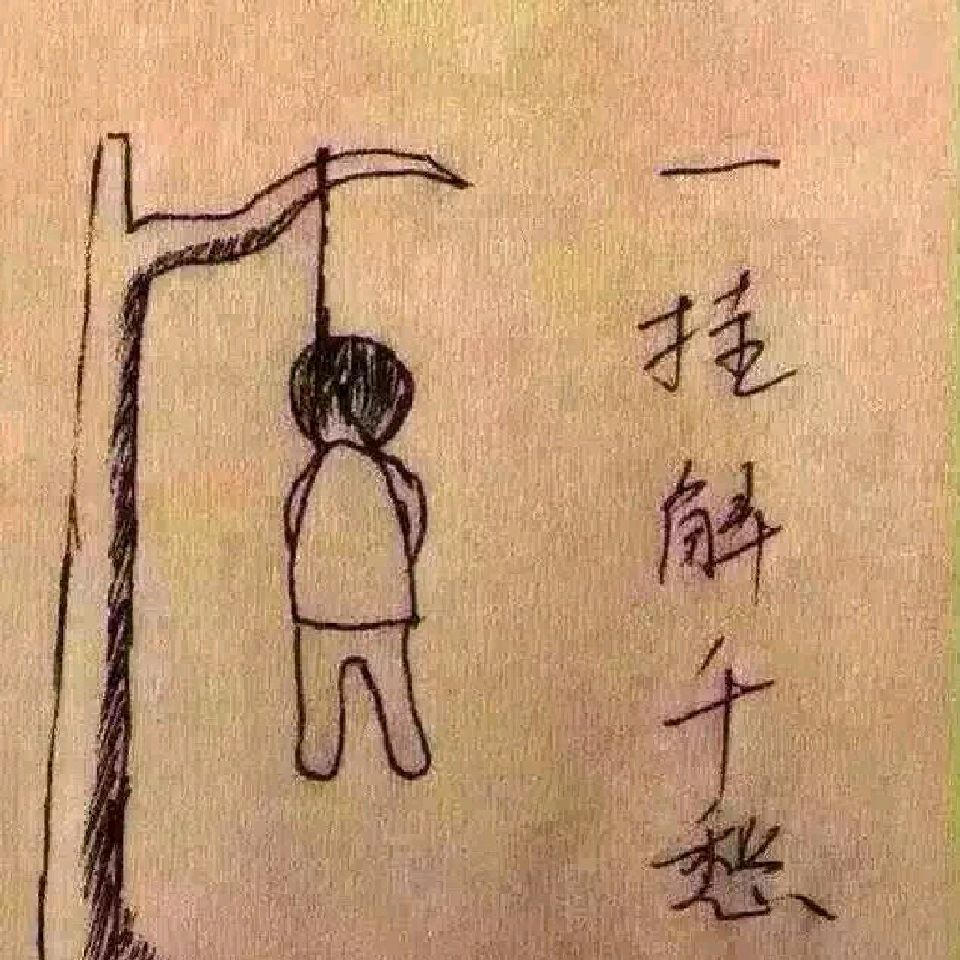 一挂解千愁